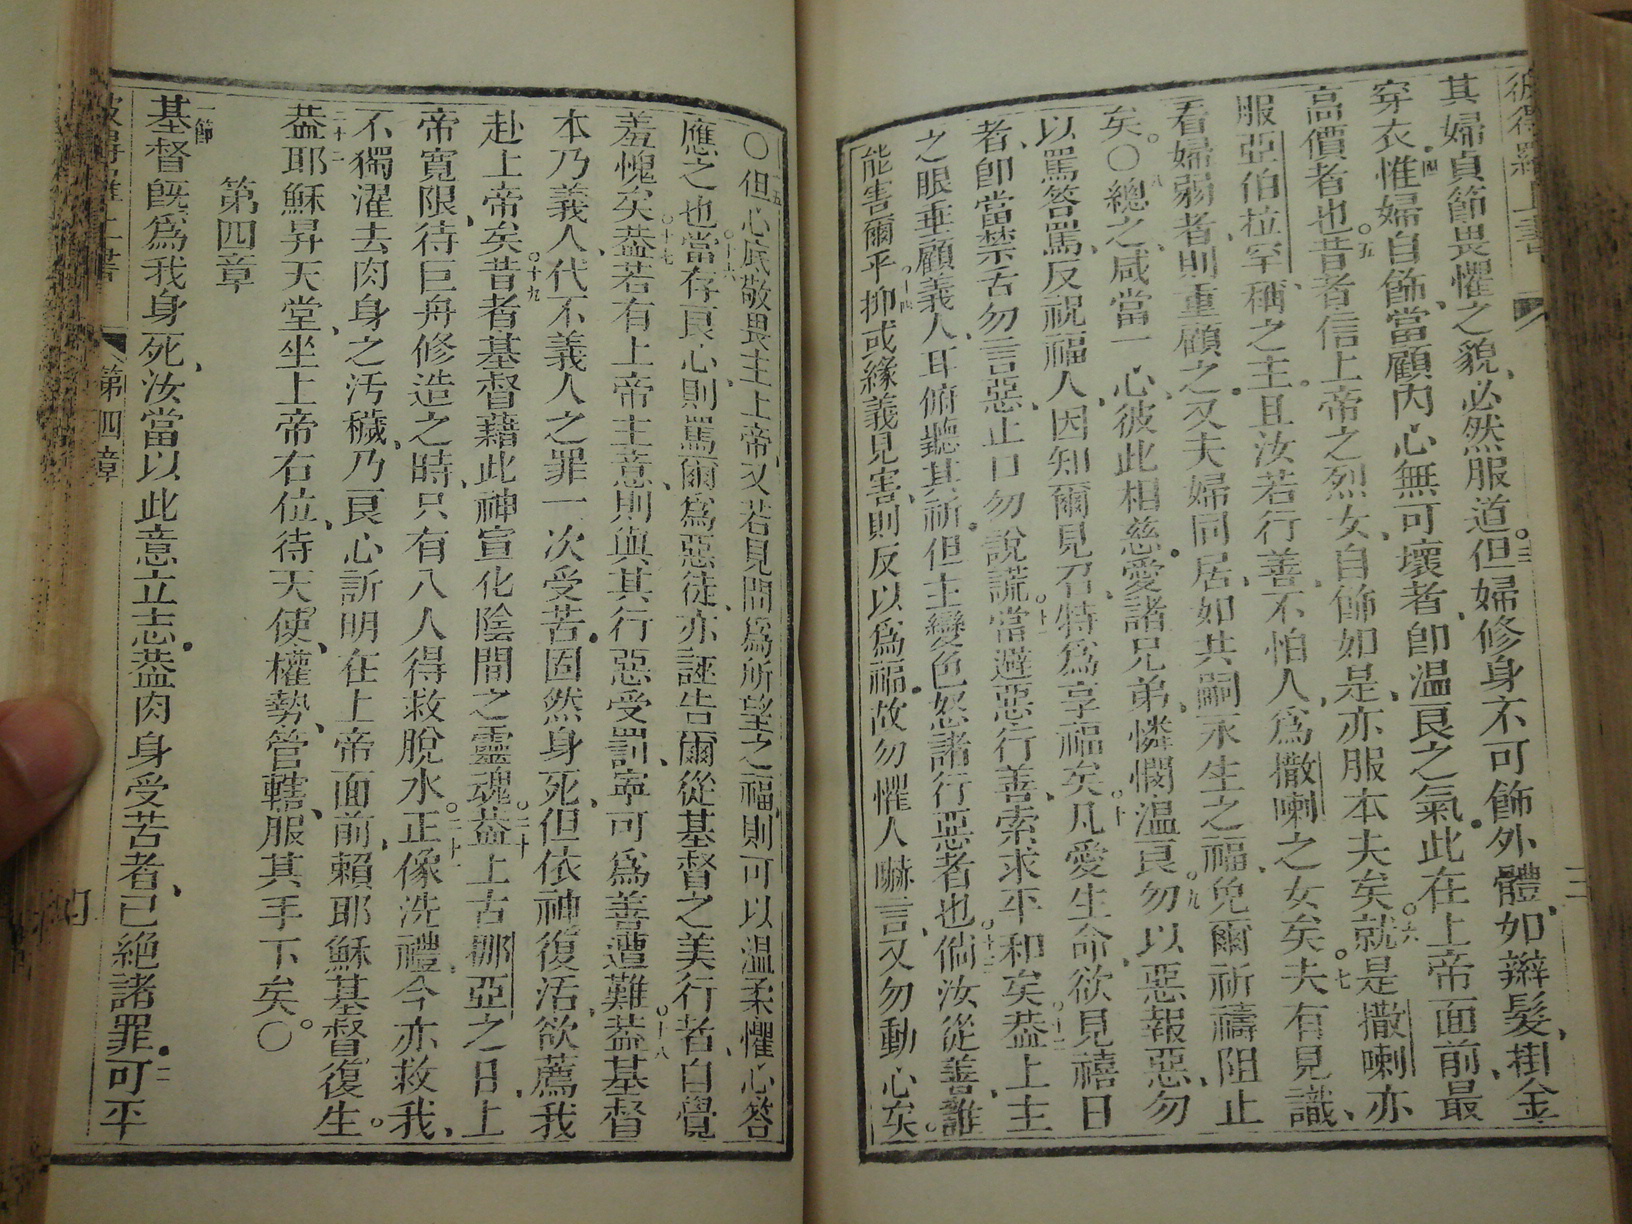 彼得羅上書
三
其婦貞節畏懼之貌、必然服道。三但婦修身不可飾外體、如辮髮、掛金
穿衣、四惟婦自飾、當顧內心無可壞者、卽温良之氣、此在上帝面前、最
高價者也。五昔者信上帝之烈女、自飾如是、亦服本夫矣、六就是撒喇亦
服亞伯拉罕、稱之主。且汝若行善、不怕人、爲撒喇之女矣。七夫有見識、
看婦弱者、則重顧之、又夫婦同居、如共嗣永生之福、免爾祈禱阻止
矣。○八總之、咸當一心、彼此相慈愛、諸兄弟、憐憫温良、九勿以惡報惡、勿
以罵答罵、反祝福人、因知爾見召、特爲享福矣。十凡愛生命、欲見禧日
者、卽當禁舌勿言惡、止口勿說謊、十一當避惡行善、索求平和矣。十二蓋上主
之眼垂顧義人、耳俯聽其祈、但主變色怒諸行惡者也。十三倘汝從善、誰
能害爾乎。十四抑或緣義見害、則反以爲福、故勿懼人嚇言、又勿動心矣。
○十五但心底敬畏主上帝、又若見問爲所望之福、則可以温柔懼心答
應之也。十六當存良心、則罵爾爲惡徒、亦誣告爾從基督之美行者、自覺
羞愧矣。十七蓋若有上帝主意、則與其行惡受罰、寧可爲善遭難。十八蓋基督
本乃義人、代不義人之罪一次受苦、固然身死、但依神復活、欲薦我
赴上帝矣。十九昔者基督藉此神宣化陰間之靈魂。二十蓋上古挪亞之日、上
帝寬限、待巨舟修造之時、只有八人得救脫水。二十一正像洗禮、今亦救我、
不獨濯去肉身之汚穢、乃良心訴明在上帝面前、賴耶穌基督復生。
二十二蓋耶穌昇天堂、坐上帝右位、待天使、權勢、管轄、服其手下矣。○
第四章
一節基督旣爲我身死、汝當以此意立志、蓋肉身受苦者、已絕諸罪、二可平
第四章